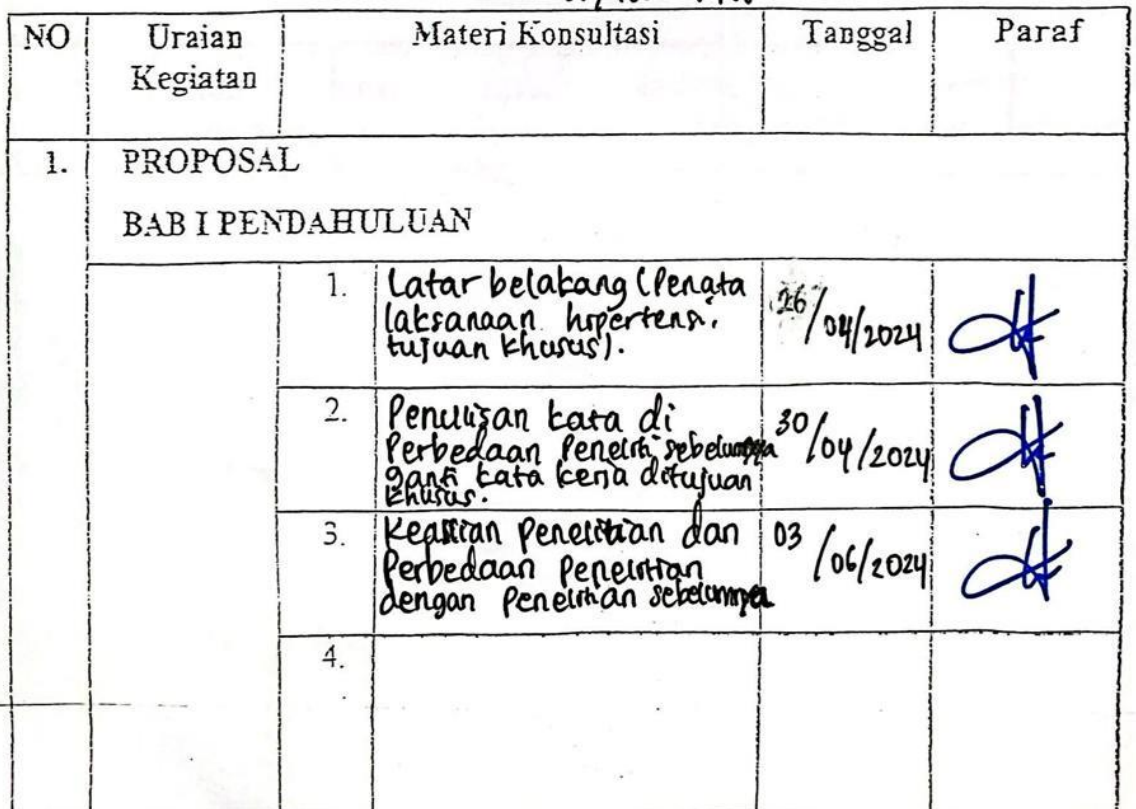 NO Uraian Materi Konsultasi Tanggal Paraf
Kegiatan
1. PROPOSAL
BAB I PENDAHULUAN
1. Latar belakang (Penata
laksanaan hipertensi,
tujuan khusus).
26/04/2024
2. Penulisan kata di
Perbedaan Peneliti sebelumnya
ganti kata kerja ditujuan
khusus.
30/04/2024
3. Keaslian Penelitian dan
Perbedaan Penelitian
dengan Penelitian sebelumnya
03/06/2024
4.